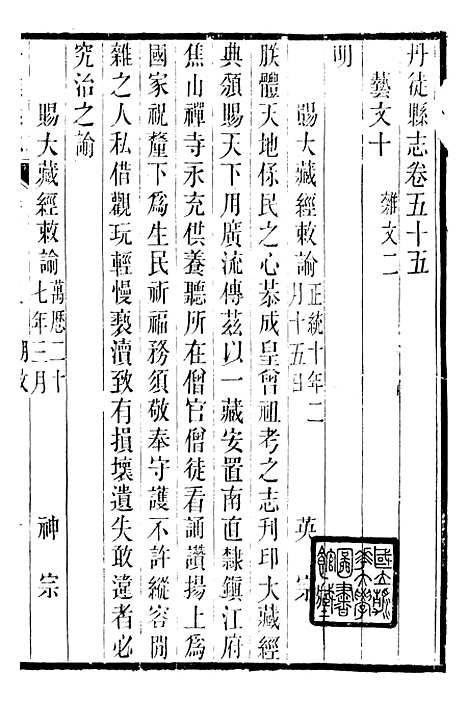 丹徒縣志卷五十五
藝文十 雜文二
明
賜大藏經敕諭 正統十年二月十五日 英宗
朕體天地保民之心恭成皇曾祖考之志刋印大藏經
典頒賜天下用廣流傳茲以一藏安置南直隸鎮江府
焦山禪寺永充供養聽所在僧官僧徒看誦讚揚上爲
國家祝釐下爲生民祈福務須敬奉守護不許縱容閒
雜之人私借觀玩輕慢褻瀆致有損壞遺失敢違者必
究治之諭
賜大藏經敕諭 萬歷二十七年三月 神宗
國立清華大學圖書館藏